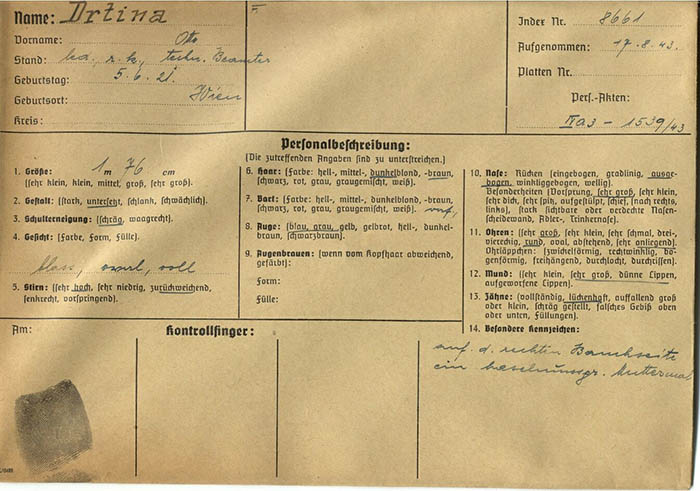 Name: Drtina
Vorname: Otto
Stand: led., r. k., techn. Beamter
Geburtstag: 5. 6. 21.
Geburtsort: Wien
Kreis:
Index Nr. 8661
Aufgenommen: 17. 8. 43.
Platten Nr.
Pers.-Akten:
IIa3 - 1539/43
Personalbeschreibung:
(Die zutreffenden Angaben sind zu unterstreichen.)
1. Größe: 1 m 76 cm
(sehr klein, klein, mittel, groß, sehr groß).
2. Gestalt: (stark, untersetzt, schlank, schwächlich).
3. Schulterneigung: (schräg, waagrecht).
4. Gesicht: (Farbe, Form, Fülle).
blass, oval, voll
5. Stirn: (sehr hoch, sehr niedrig, zurückweichend,
senkrecht, vorspringend).
6. Haar: (Farbe: hell-, mittel-, dunkelblond, -braun,
schwarz, rot, grau, graugemischt, weiß).
7. Bart: (Farbe: hell-, mittel-, dunkelblond, -braun,
schwarz, rot, grau, graugemischt, weiß).
8. Auge: (blau, grau, gelb, gelbrot, hell-, dunkel-
braun, schwarzbraun).
9. Augenbrauen: (wenn vom Kopfhaar abweichend,
gefärbt):
Form:
Fülle:
10. Nase: Rücken (eingebogen, gradlinig, ausge-
bogen, winkliggebogen, wellig).
Besonderheiten (Vorsprung, sehr groß, sehr klein,
sehr dick, sehr spitz, aufgestülpt, schief, nach rechts,
links), stark sichtbare oder verdeckte Nasen-
scheidewand, Adler-, Trinkernase).
11. Ohren: (sehr groß, sehr klein, sehr schmal, drei-,
viereckig, rund, oval, abstehend, sehr anliegend).
Ohrläppchen: (zwickelförmig, rechtwinklig, bo-
genförmig, freihängend, durchlocht, durchrissen).
12. Mund: (sehr klein, sehr groß, dünne Lippen,
aufgeworfene Lippen).
13. Zähne: (vollständig, lückenhaft, auffallend groß
oder klein, schräg gestellt, falsches Gebiß oben
oder unten, Füllungen).
14. Besondere Kennzeichen:
auf d. rechten Bauchseite
ein Muttermal
Am:
Kontrollfinger: